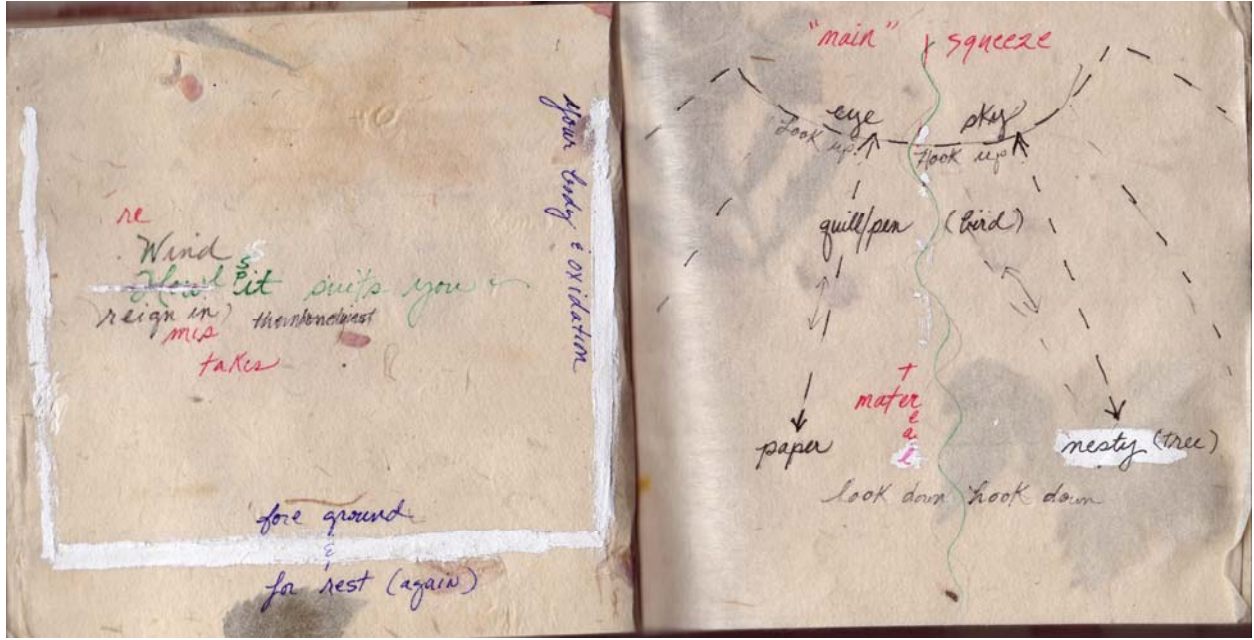 re
Wind s
sp it suits you
reign in
mis
takes
your body & oxidation
fore ground
&
for rest (again)
"main" squeeze
eye sky
Look up Hook up
quill/pen (bird)
t
matereal
paper nesty (tree)
look down hook down